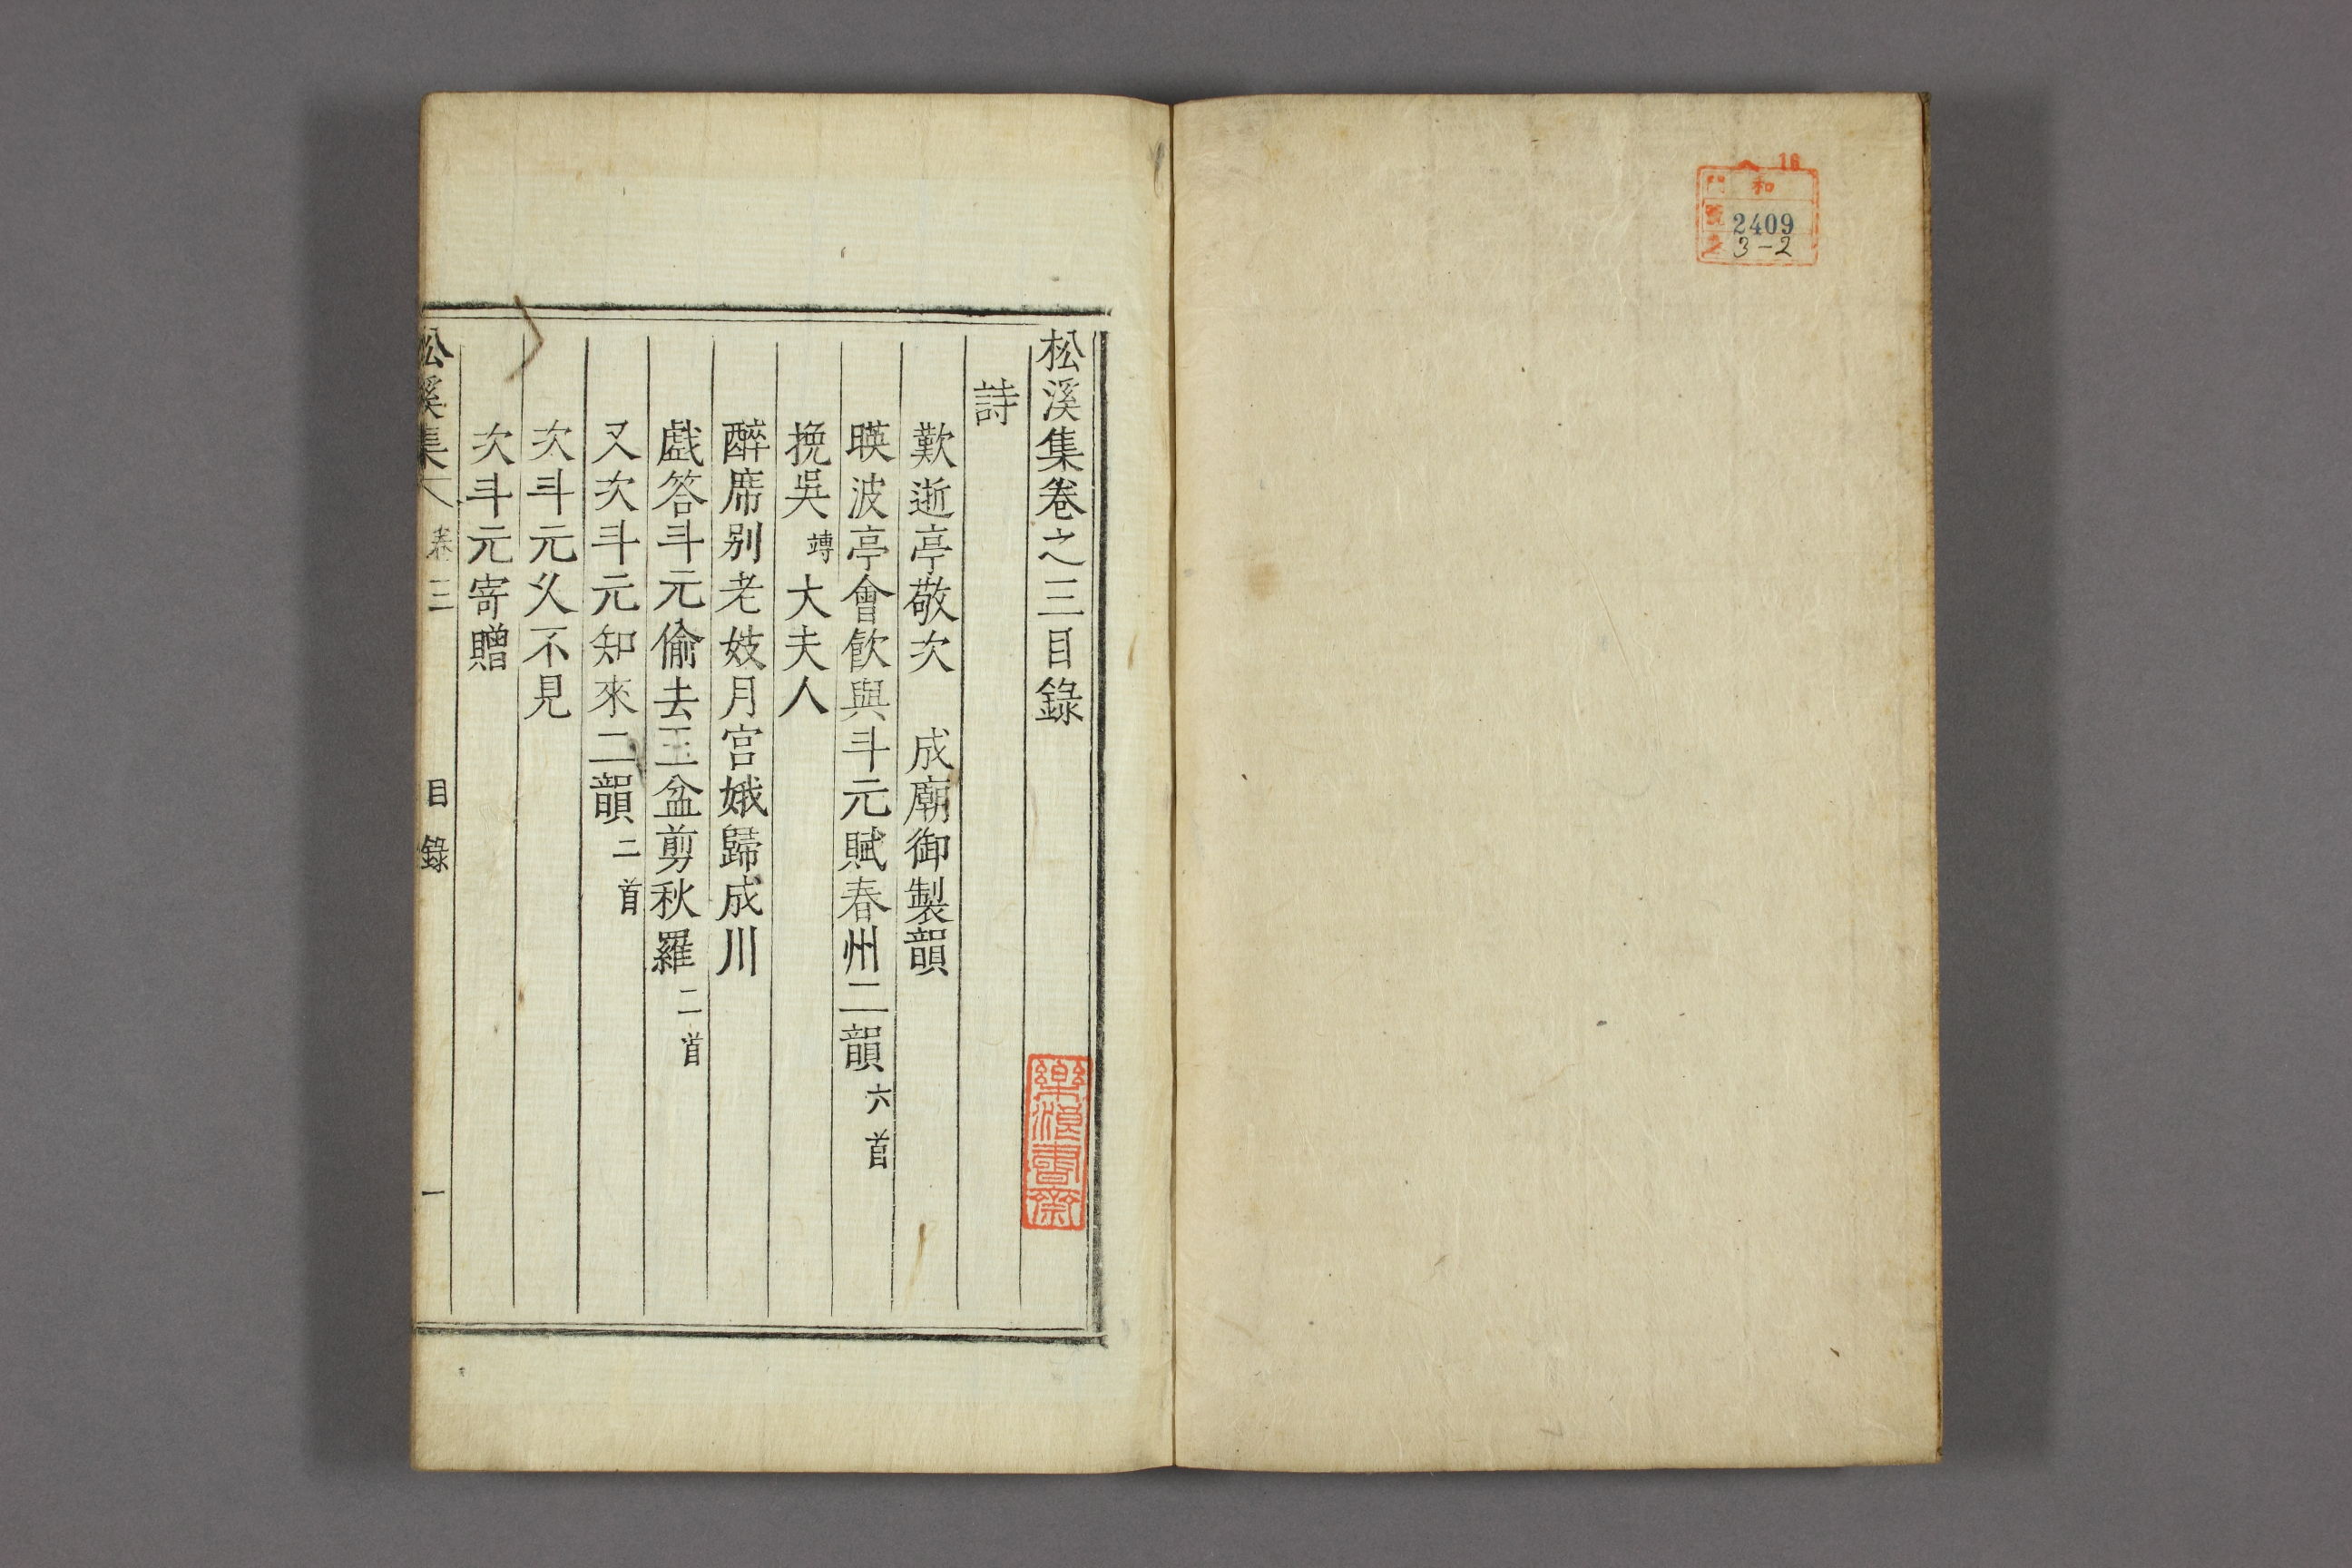 16
和
門
號
2409
3-2
松溪集卷之三目錄
詩
歎逝亭敬次 成廟御製韻
暎波亭會飮與斗元賦春州二韻 六首
挽吳竱大夫人
醉席別老妓月宮娥歸成川
戱答斗元偷去玉盆剪秋羅 二首
又次斗元知來二韻 二首
次斗元久不見
次斗元寄贈
松溪集 卷三 目錄 一
樂浪書齋